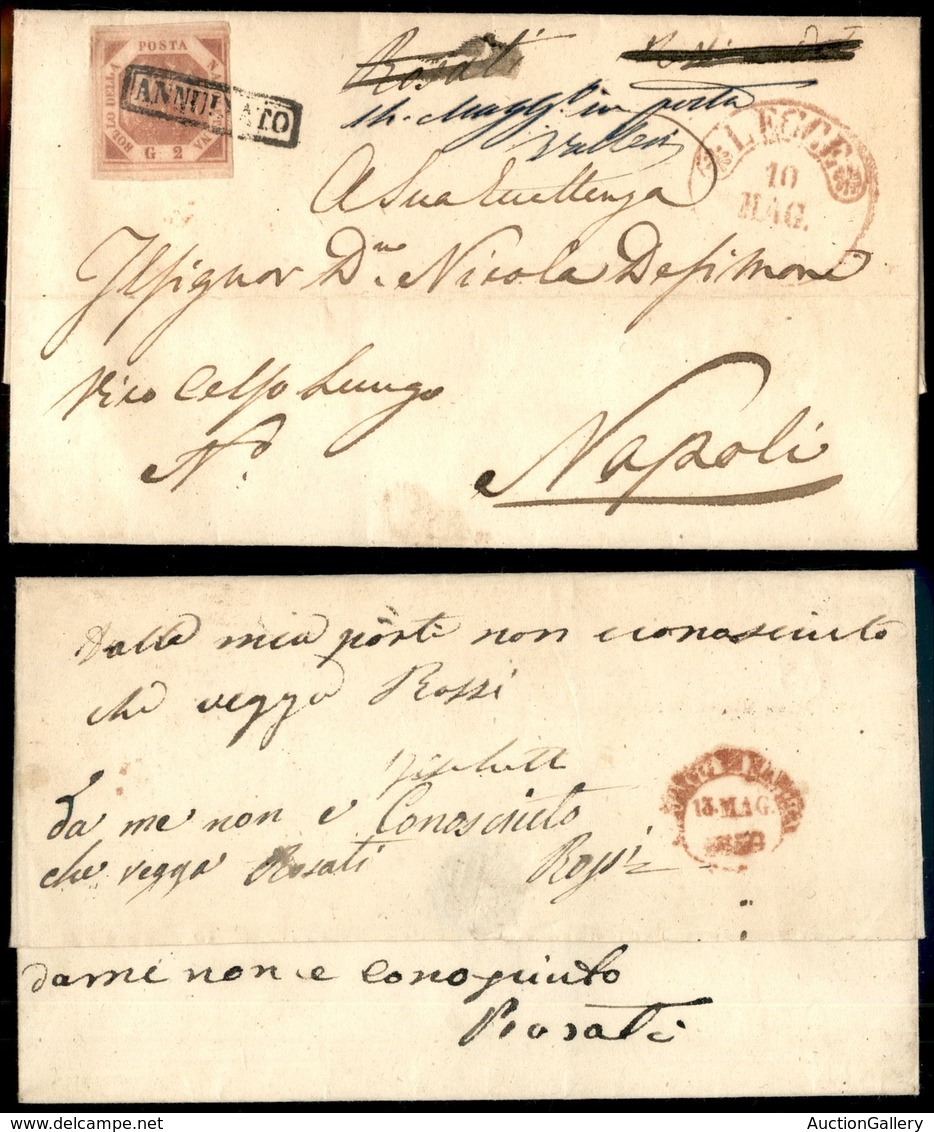 POSTA
BOLLO DELLA
G 2
ANNULLATO
Rosati
in porta
LECCE
10
MAG.
A Sua Eccellenza
Il Signor D.n Nicola Desimone
Vico Celso Lungo
N.
Napoli
Dalla mia porte non conosciuto
che vegga Rossi
Da me non e Conosciuto
che vegga Rosati Rossi
13.MAG.
da me non e conosciuto
Rosati
AuctionGallery